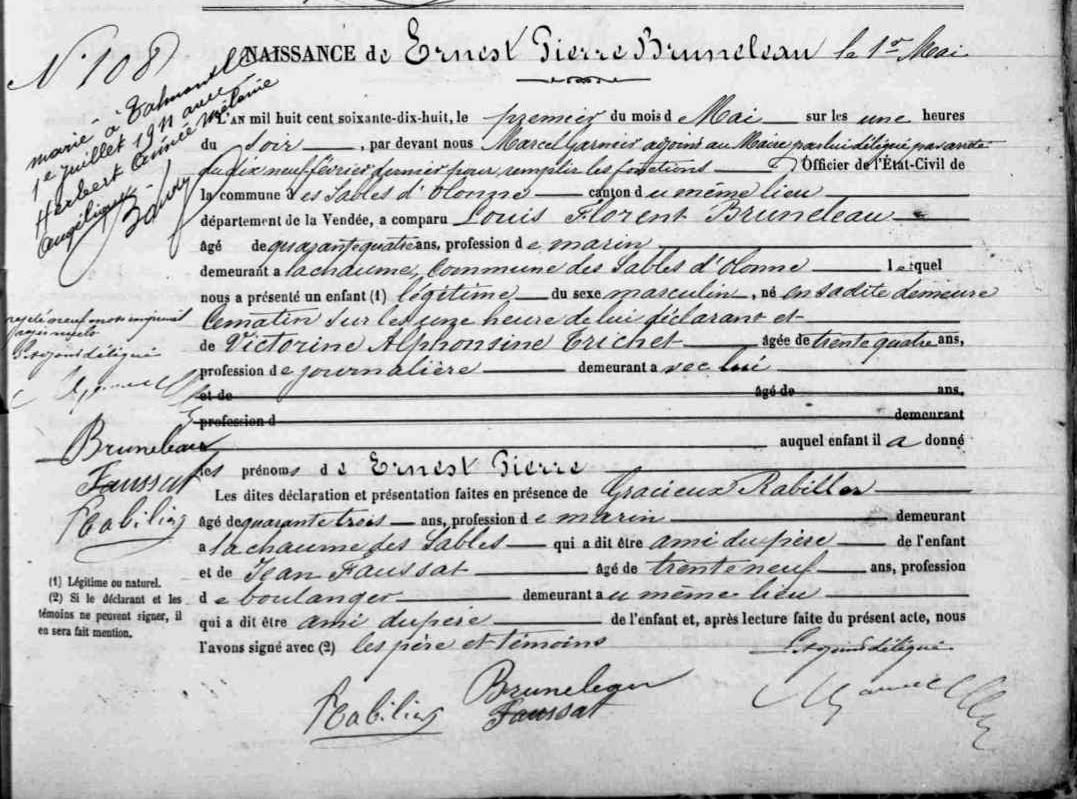 N° 108
NAISSANCE de Ernest Pierre Bruneleau le 1er Mai
marié à Talmont le
1er juillet 1911 avec
Herbert Aimée Mélanie
Angélique
L'AN mil huit cent soixante-dix-huit, le premier du mois de Mai sur les une heures
du soir, par devant nous Marcel Garnier adjoint au Maire par lui délégué par arrêté
du dix neuf février dernier pour remplir les fonctions d'Officier de l'État-Civil de
la commune des Sables d'Olonne canton du même lieu
département de la Vendée, a comparu Louis Florent Bruneleau
âgé de quarante quatre ans, profession de marin
demeurant a la chaume, Commune des Sables d'Olonne lequel
nous a présenté un enfant (1) légitime du sexe masculin, né en sa dite demeure
ce matin sur les onze heure de lui déclarant et
de Victorine Alphonsine Trichet âgée de trente quatre ans,
profession de journalière demeurant avec lui
et de âgé de ans,
profession d demeurant
auquel enfant il a donné
les prénoms de Ernest Pierre
Les dites déclaration et présentation faites en présence de Gracieux Rabiller
âgé de quarante trois ans, profession de marin demeurant
a la chaume des Sables qui a dit être ami du père de l'enfant
et de Jean Faussat âgé de trente neuf ans, profession
de boulanger demeurant au même lieu
qui a dit être ami du père de l'enfant et, après lecture faite du présent acte, nous
l'avons signé avec (2) les père et témoins
L'adjoint délégué
Bruneleau
Faussat
L'adjoint délégué
Bruneleau
Faussat
(1) Légitime ou naturel.
(2) Si le déclarant et les
témoins ne peuvent signer, il
en sera fait mention.